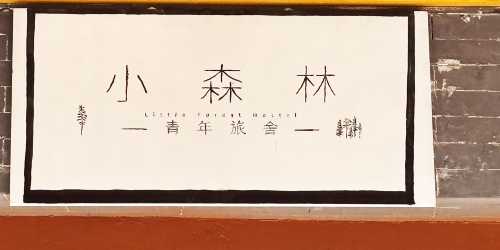 小森林
Little Forest Hostel
— 青年旅舍 —